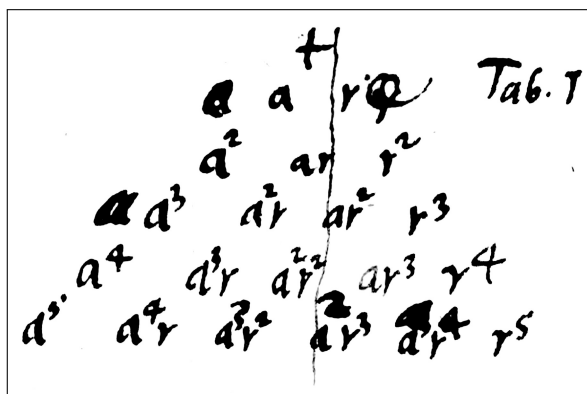 +
a r Tab. I
a² ar r²
a³ a²r ar² r³
a⁴ a³r a²r² ar³ r⁴
a⁵ a⁴r a³r² a²r³ ar⁴ r⁵